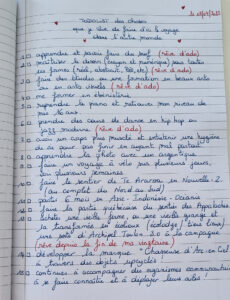 TODOLIST des choses
que je rêve de faire d'ici le voyage
dans l'autre monde
apprendre et savoir faire du surf (rêve d'ado)
maîtriser le dessin (crayon et numérique) sous toutes
ses formes (réél, abstrait, BD, etc) (rêve d'ado)
faire des études ou une formation en beaux arts
ou en arts visuels (rêve d'ado)
me former en ébénisterie
reprendre le piano et retrouver mon niveau de
mes 16 ans
prendre des cours de danse en hip hop ou
jazz moderne (rêve d'ado)
avoir un corps plus musclé et entretenir une hygiène
de vie pour pas finir en ayant mal partout
apprendre la photo avec un argentique
faire un voyage à vélo sur plusieurs jours,
voir plusieurs semaines
faire le sentier de Te Araroa en Nouvelle-Z.
(au complet du Nord au Sud)
partir 6 mois en Asie - Indonésie - Océanie
faire la partie américaine du sentier des Appalaches
acheter une vieille ferme, ou une vieille grange et
la transformer en maison (écolodge, tiers lieux)
une sorte d'Archipel Tattoo 2.0 à la campagne
(rêve depuis la fin de ma vingtaine)
développer la marque "Chasseuse d'Arc-en-Ciel"
à travers des objets upcyclés
continuer à accompagner des organismes communautaires
à se faire connaître et à déployer leurs ailes!